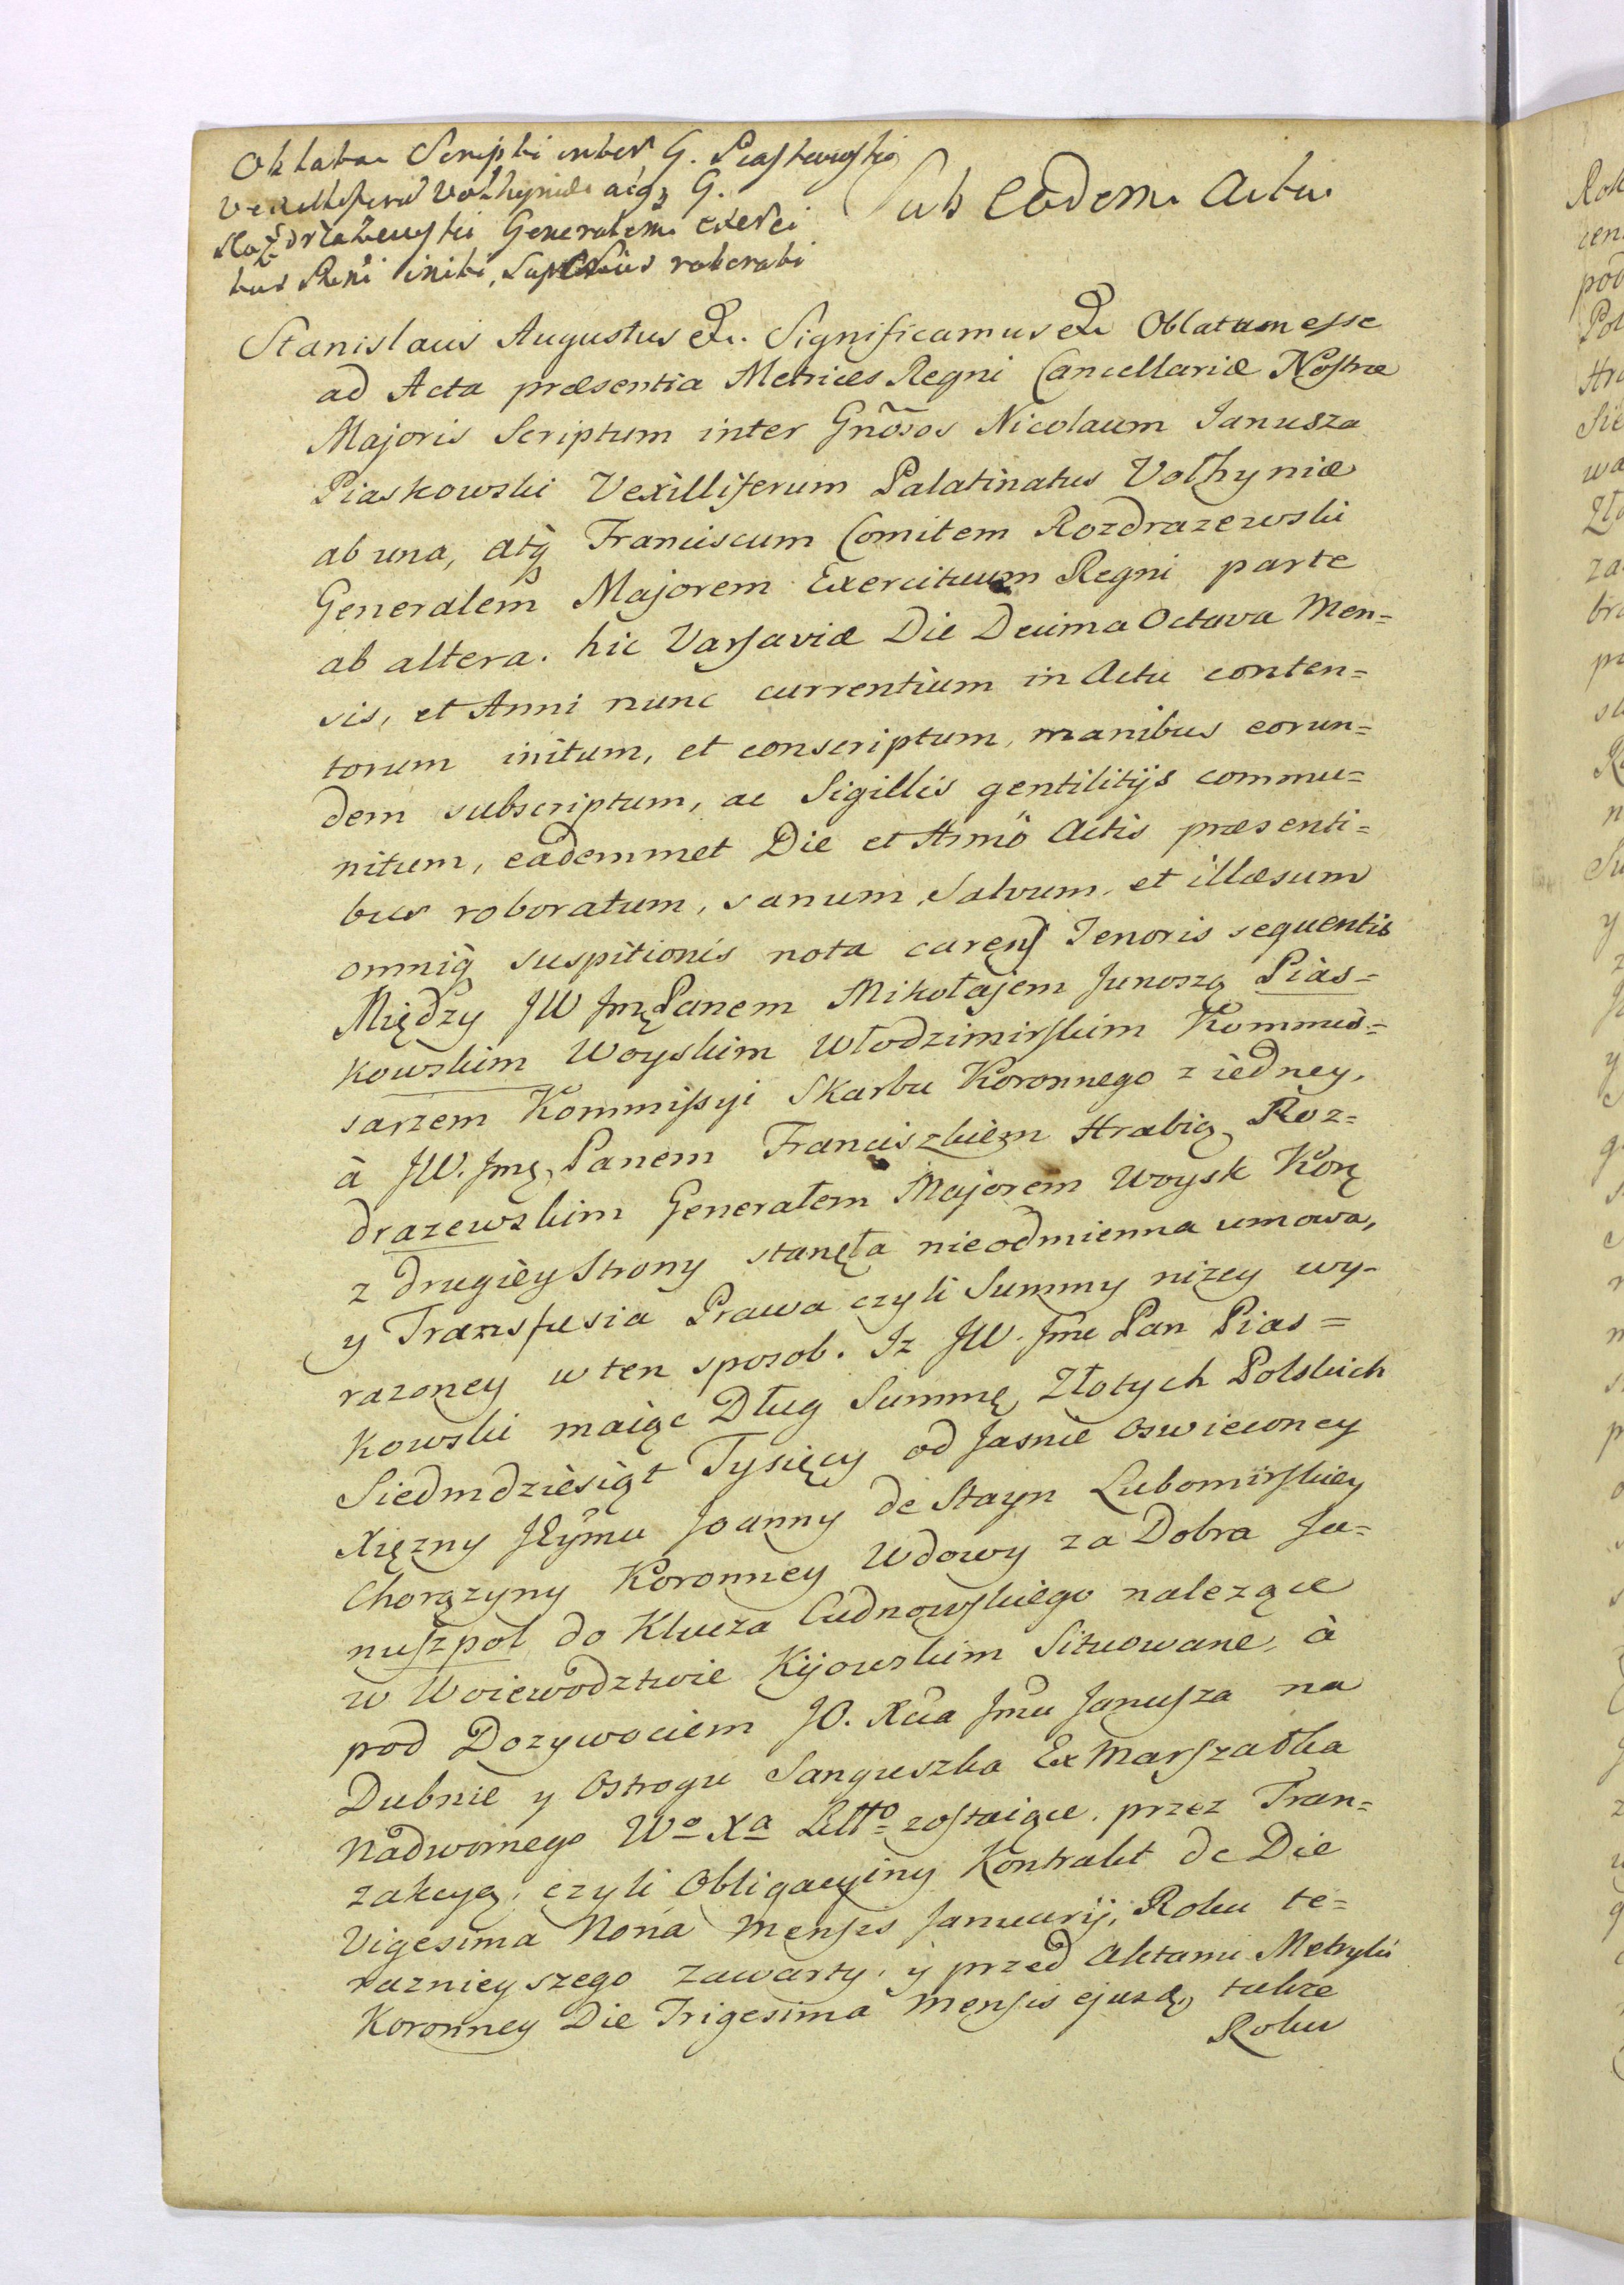 Oblatae Scripti inter G. Piaskowski
Vexilliferū Volhyniæ atqз G.
Rozdrażewski Generalem exerci
tus Reni initi, Sup roborati
Sub Eodem Actu
Stanislaus Augustus &c. Significamus &c Oblatum esse
ad Acta præsentia Metrices Regni Cancellariæ Nostræ
Majoris Scriptum inter Gnõsos Nicolaum Janusza
Piaskowski Vexilliferum Palatinatus Volhyniæ
ab una, atq̃ Franciscum Comitem Rozdrazewski
Generalem Majorem Exercituum Regni parte
ab altera. hic Varsaviæ Die Decima Octava Men=
sis, et Anni nunc currentium in Actu conten=
torum initum, et conscriptum, manibus eorun=
dem subscriptum, ac Sigillis gentilitijs commu=
nitum, eademmet Die et Anno Actis præsenti=
bus roboratum, sanum, Salvum, et illæsum
omniq̃ suspitionis nota carens Tenoris sequentis
Między JW Jmę Panem Mikołajem Junoszą Pias=
kowskim Woyskim Włodzimirskim Kommis=
sarzem Kommissyi Skarbu Koronnego z iedney,
à JW. Jmę, Panem Franciszkiem Hrabią Roz=
drazewskim Generałem Majorem Woysk Korę
z drugiey Strony stanęła nieodmienna umowa,
y Transfusia Prawa czyli Summy nizey wy-
razoney w ten sposob. Iz JW. Jmć Pan Pias=
kowski maiąc Dług Summę Złotych Polskich
Siedmdziesiąt Tysięcy od Jasnie Oswiecony
Xięzny JEymu Joanny de Stayn Lubomirskiey
Chorązyny Koronney Wdowy za Dobra Ja=
nuszpol do Klucza Cudnowskiego nalezące
w Woiewodztwie Kijowskim Situowane, à
pod Dozywociem JO. Xcia Jmu Janusza na
Dubnie y Ostrogu Sanguszka Ex Marszałka
Nadwornego Wo Xa Litto zostaiące. przez Tran=
zakcyą, czyli Obligacyiny Kontrakt de Die
Vigesima Nona Mensis Januarij, Roku te=
raznieyszego zawarty, y przed Aktami Metryki
Koronney Die Trigesima Mensis ejusd, tukże
Roku